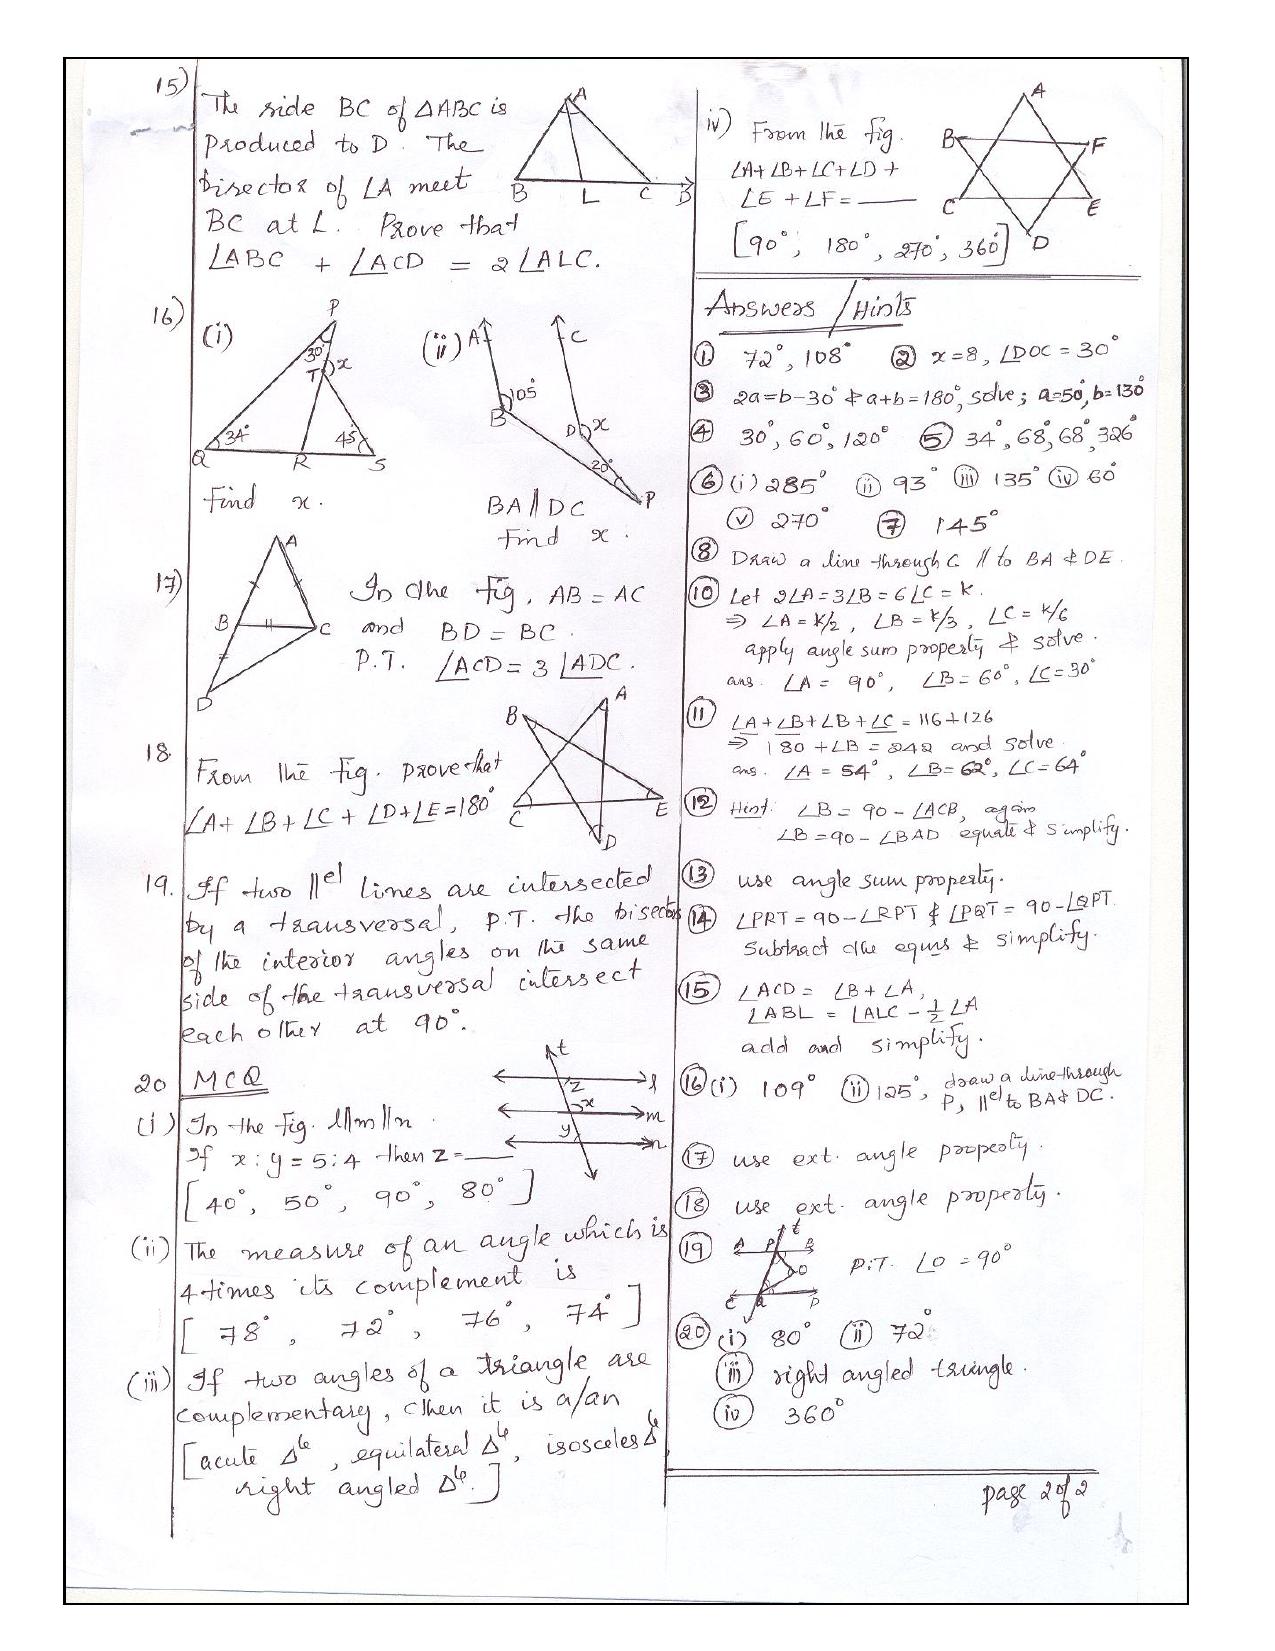 15)
The side BC of ΔABC is
produced to D. The
bisector of ∠A meet
BC at L. Prove that
∠ABC + ∠ACD = 2∠ALC.
A
B L C D
16)
(i)
P
30°
T x
34° 45°
Q R S
Find x.
(ii)
A C
105°
B
D x
20°
P
BA∥DC
Find x.
17)
A
B C
D
In the fig, AB = AC
and BD = BC.
P.T. ∠ACD = 3∠ADC.
18.
From the fig. prove that
∠A+ ∠B + ∠C + ∠D+∠E=180°
B A
C E
D
19. If two ∥el lines are intersected
by a transversal, P.T. the bisectors
of the interior angles on the same
side of the transversal intersect
each other at 90°.
20 MCQ
(i) In the fig. l∥m∥n.
If x:y = 5:4 then z=____
[40°, 50°, 90°, 80°]
t
z l
x m
y n
(ii) The measure of an angle which is
4 times its complement is
[78°, 72°, 76°, 74°]
(iii) If two angles of a triangle are
complementary, then it is a/an
[acute Δle, equilateral Δle, isosceles Δle,
right angled Δle.]
iv) From the fig.
∠A+ ∠B+∠C+∠D +
∠E +∠F= ____
[90°, 180°, 270°, 360°]
A
B F
C E
D
Answers/Hints
① 72°, 108° ② x=8, ∠DOC = 30°
③ 2a=b-30° & a+b=180°, solve; a=50°, b=130°
④ 30°, 60°, 120° ⑤ 34°, 68°, 68°, 326°
⑥ (i) 285° (ii) 93° (iii) 135° (iv) 60°
(v) 270° ⑦ 145°
⑧ Draw a line through C ∥ to BA & DE.
⑩ Let 2∠A=3∠B=6∠C=K.
⇒ ∠A=K/2, ∠B=K/3, ∠C=K/6
apply angle sum property & solve.
ans. ∠A = 90°, ∠B=60°, ∠C=30°
⑪ ∠A+∠B+∠B+∠C=116+126
⇒ 180+∠B=242 and solve.
ans. ∠A = 54°, ∠B=62°, ∠C=64°
⑫ Hint. ∠B= 90-∠ACB, again
∠B=90-∠BAD equate & simplify.
⑬ use angle sum property.
⑭ ∠PRT=90-∠RPT & ∠PQT=90-∠QPT.
Subtract the equns & simplify.
⑮ ∠ACD= ∠B+∠A,
∠ABL = ∠ALC-½∠A
add and simplify.
⑯ (i) 109° (ii) 125°, draw a line through
P, ∥el to BA & DC.
⑰ use ext. angle property.
⑱ use ext. angle property.
⑲ P.T. ∠O = 90°
t
A P B
O
C Q D
⑳ (i) 80° (ii) 72°
(iii) right angled triangle.
(iv) 360°
page 2 of 2